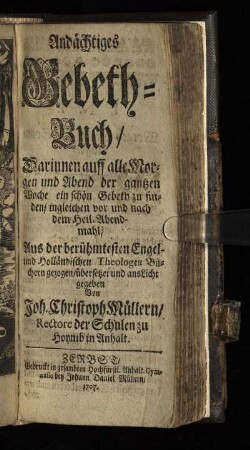 Andächtiges
Gebeth-
Buch/
Darinnen auff alle Mor-
gen und Abend der gantzen
Woche ein schön Gebeth zu fin-
den/ ingleichen vor und nach
dem Heil. Abend-
mahl/
Aus der berühmtesten Engel-
und Holländischen Theologen Bü-
chern gezogen/übersetzet und ans Licht
gegeben
Von
Joh. Christoph Müllern/
Rectore der Schulen zu
Hoymb in Anhalt.
ZERBST/
Gedruckt in gesambten Hochfürstl. Anhalt. Gym-
nasio bey Johann Daniel Müllern/
1707.